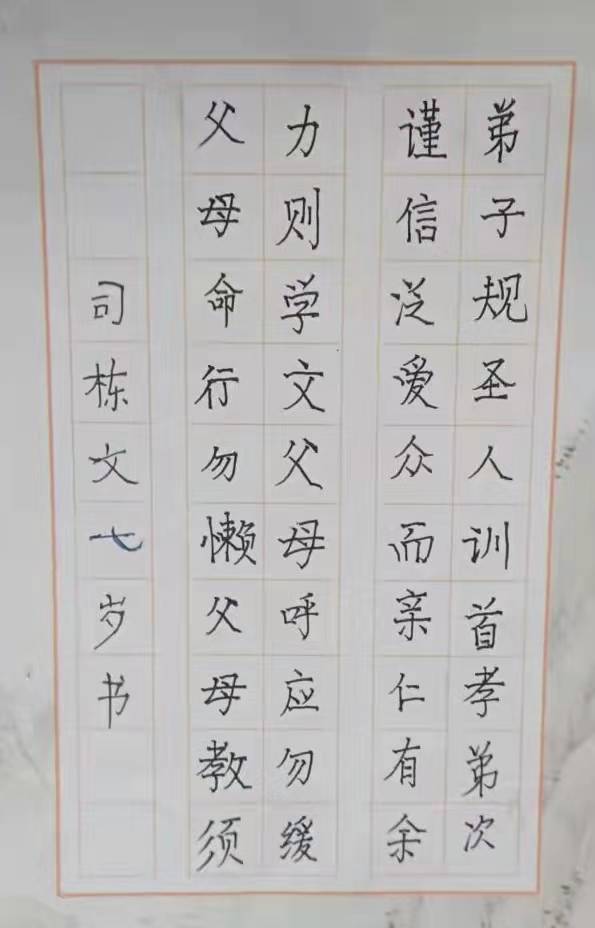 弟子规圣人训首孝弟次
谨信泛爱众而亲仁有余
力则学文父母呼应勿缓
父母命行勿懒父母教须
司栋文七岁书